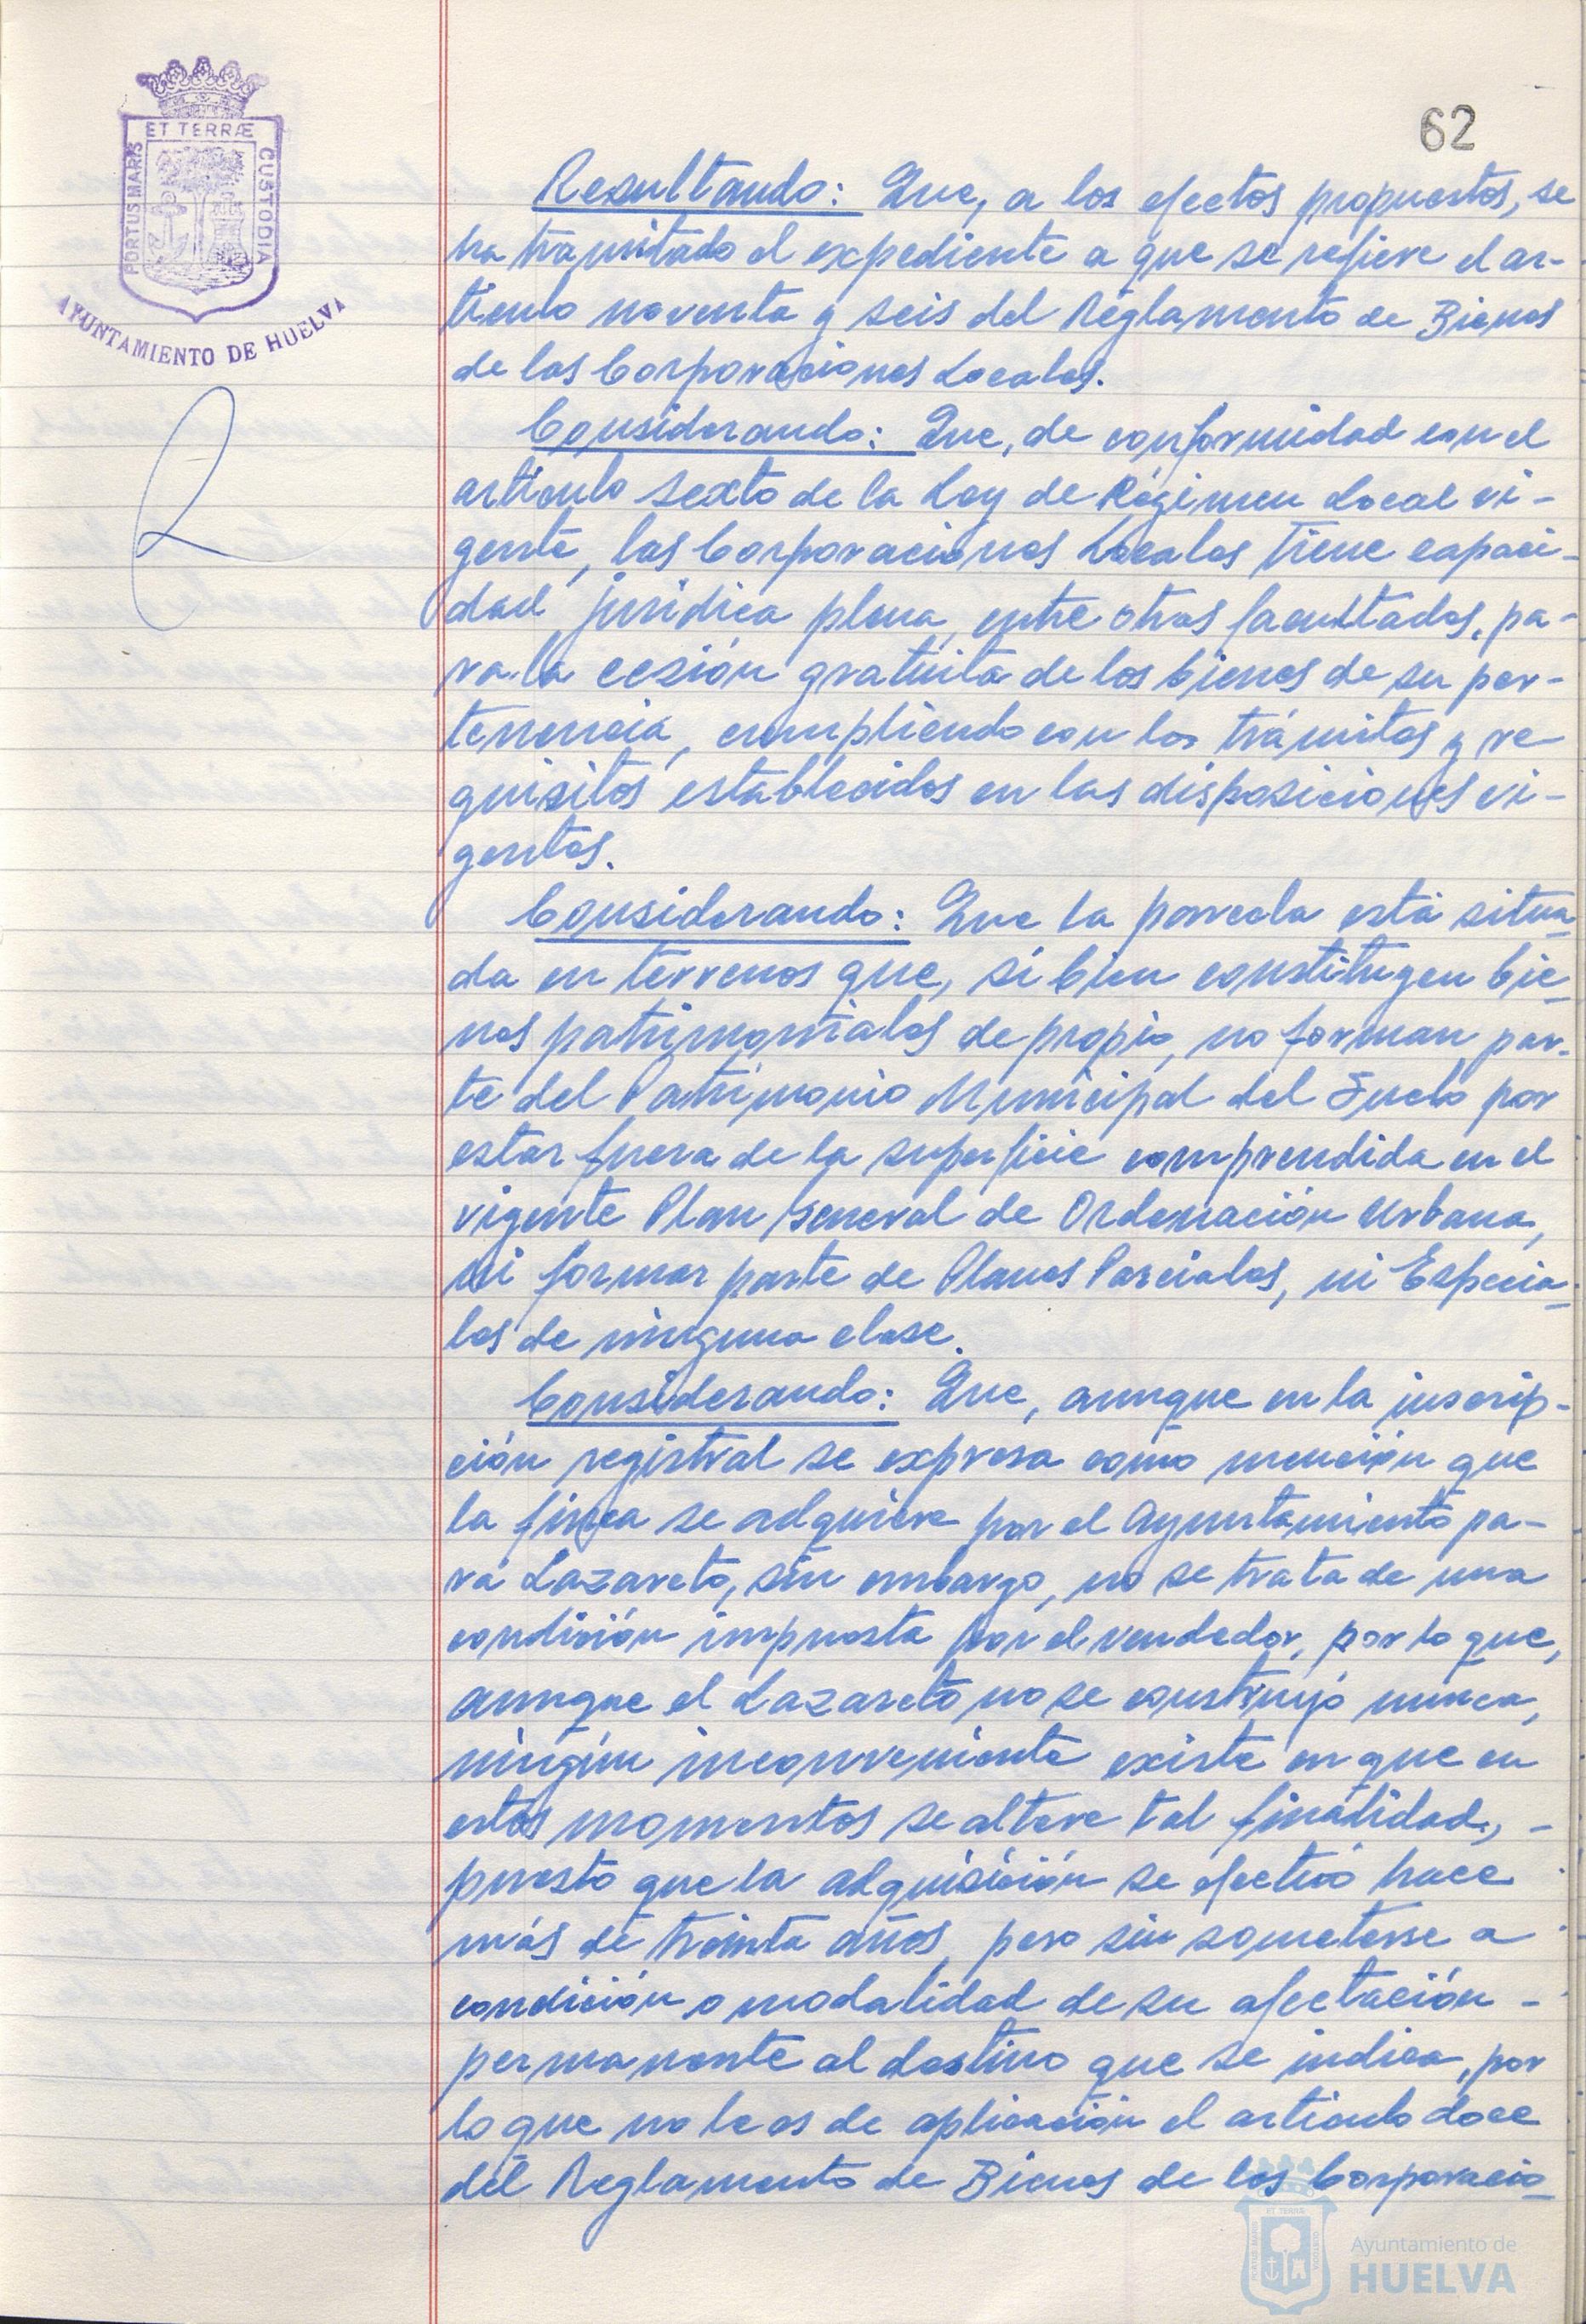 62
ET TERRÆ
PORTUS MARIS
CUSTODIA
AYUNTAMIENTO DE HUELVA
Resultando: Que, a los efectos propuestos, se
ha tramitado el expediente a que se refiere el ar-
tículo noventa y seis del Reglamento de Bienes
de las Corporaciones Locales.
Considerando: Que, de conformidad con el
artículo sexto de la Ley de Régimen Local vi-
gente, las Corporaciones Locales tiene capaci-
dad jurídica plena, entre otras facultades, pa-
ra la cesión gratuita de los bienes de su per-
tenencia, cumpliendo con los trámites y re
quisitos establecidos en las disposiciones vi-
gentes.
Considerando: Que la parcela está situa-
da en terrenos que, si bien constituyen bie-
nes patrimoniales de propio, no forman par-
te del Patrimonio Municipal del Suelo por
estar fuera de la superficie comprendida en el
vigente Plan General de Ordenación Urbana,
ni formar parte de Planes Parciales, ni Especia-
les de ninguna clase.
Considerando: Que, aunque en la inscrip-
ción registral se expresa como mención que
la finca se adquiere por el Ayuntamiento pa-
ra Lazareto, sin embargo, no se trata de una
condición impuesta por el vendedor, por lo que,
aunque el Lazareto no se construyó nunca,
ningún inconveniente existe en que en
estos momentos se altere tal finalidad, -
puesto que la adquisición se efectuó hace
más de treinta años, pero sin someterse a
condición o modalidad de su afectación -
permanente al destino que se indica, por
lo que no le es de aplicación el artículo doce
del Reglamento de Bienes de las Corporacio-
Ayuntamiento de
HUELVA